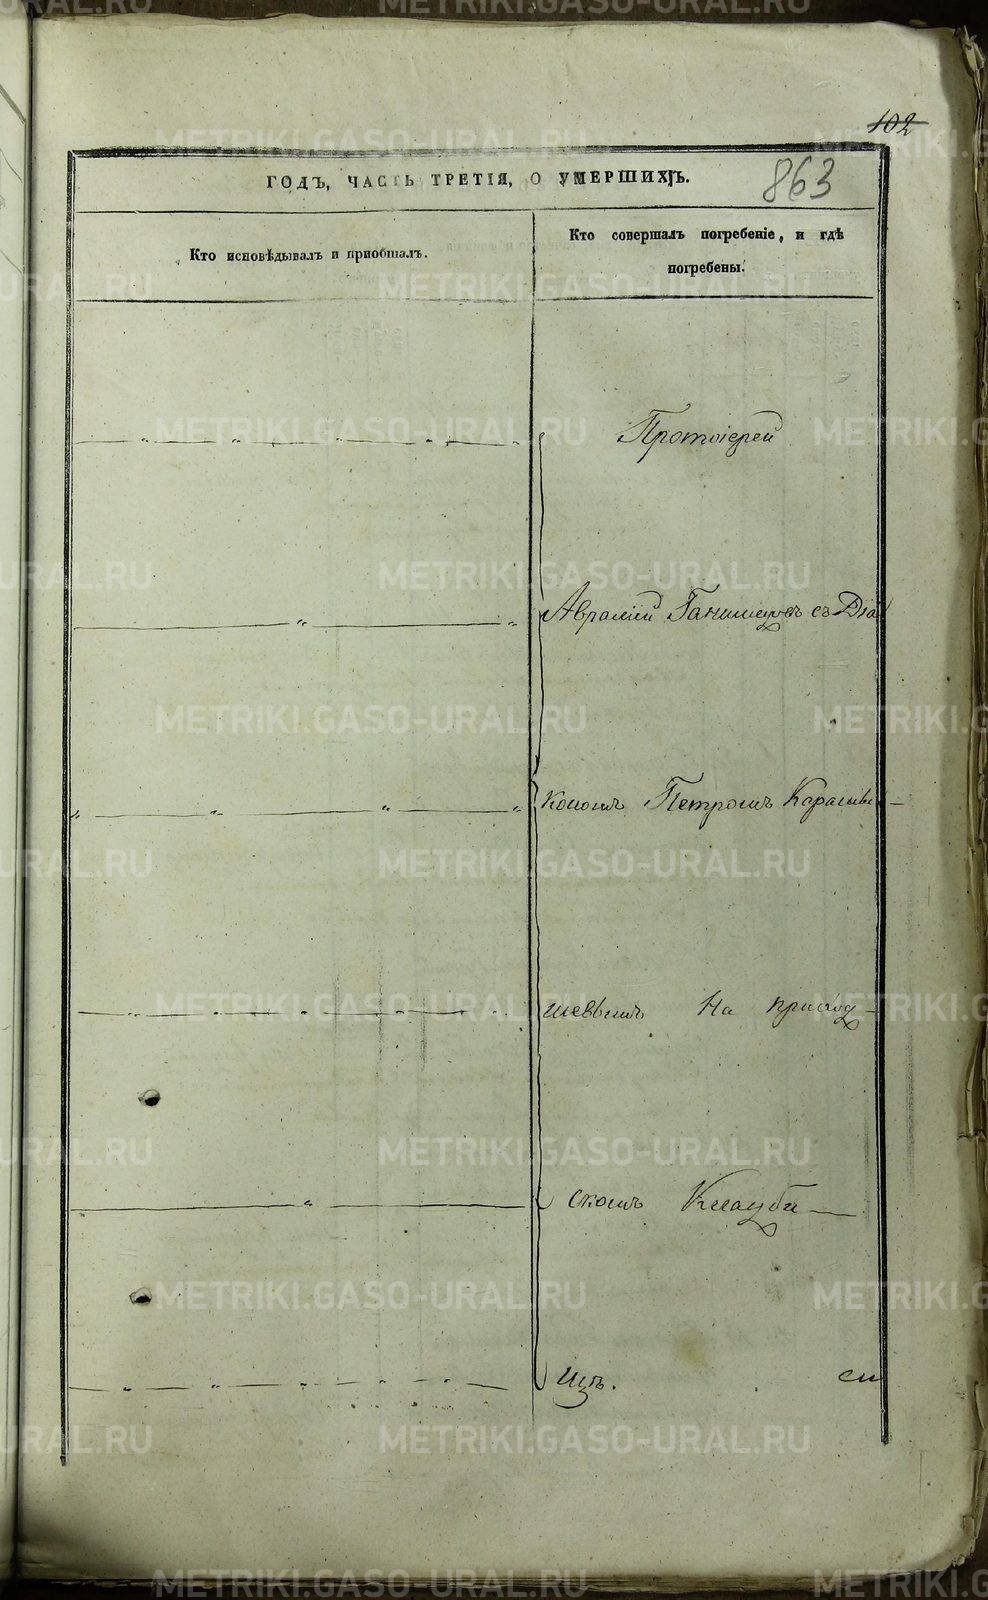 102
ГОДЪ, ЧАСТЬ ТРЕТІЯ, О УМЕРШИХЪ.
863
Кто исповѣдывалъ и пріобщалъ.
Кто совершалъ погребеніе, и гдѣ
погребены.
Протоіерей
Авраамій съ Діа
кономъ Петромъ Карамы
шевымъ На приход
скомъ Кладби
щѣ.
METRIKI.GASO-URAL.RU